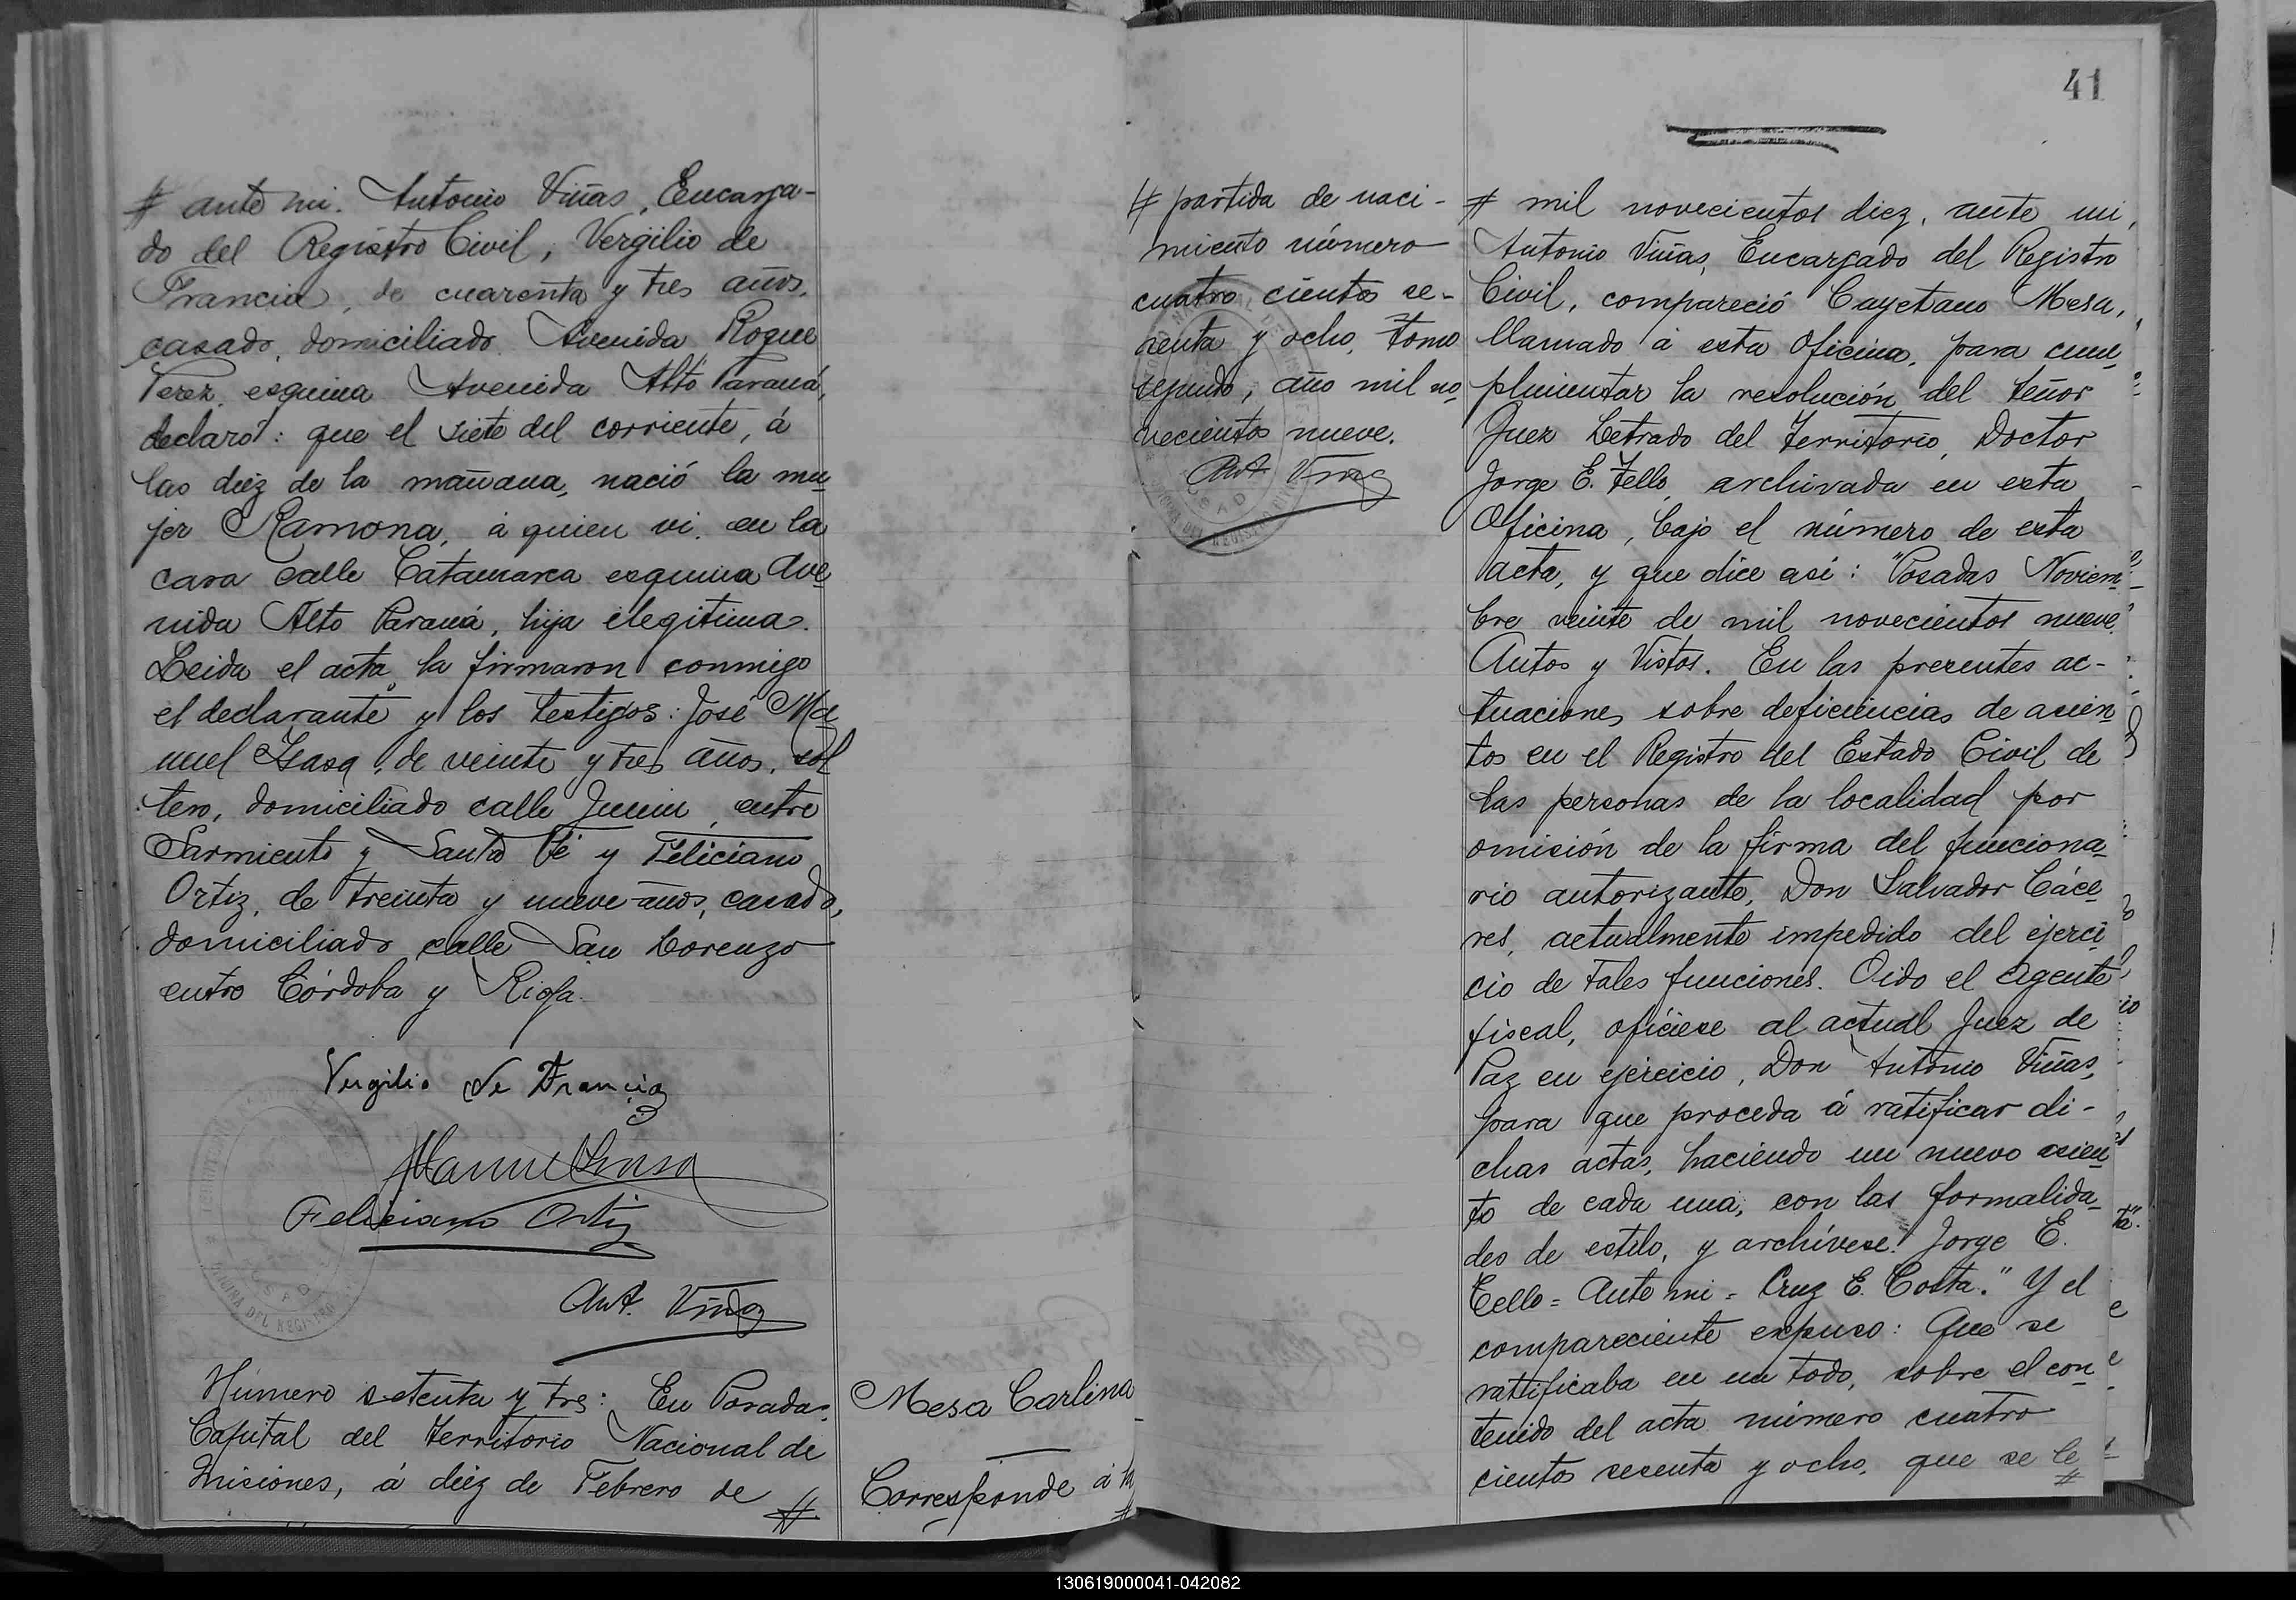 # ante mi. Antonio Viñas, Encarga-
do del Registro Civil, Vergilio de
Francia, de cuarenta y tres años,
casado, domiciliado Avenida Roque
Perez, esquina Avenida Alto Paraná,
declaró: que el siete del corriente, á
las diez de la mañana, nació la mu
jer Ramona, á quien vi. en la
casa calle Catamarca esquina Ave
nida Alto Paraná, hija ilegitima.
Leida el acta, la firmaron conmigo
el declarante y los testigos: José Ma
nuel Isasa, de veinte y tres años, sol
tero, domiciliado calle Junin, entre
Sarmiento y Santa Fé y Feliciano
Ortiz, de treinta y nueve años, casado,
domiciliado calle San Lorenzo
entre Córdoba y Rioja.
Vergilio de Francia
Feliciano Ortiz
Ant. Viñas
OFICINA DEL REGISTRO
Número setenta y tres: En Posadas,
Capital del Territorio Nacional de
Misiones, á diez de Febrero de #
Mesa Carlina
Corresponde á la
#
# partida de naci-
miento número
cuatro cientos se-
senta y ocho, tomo
segundo, año mil no
vecientos nueve.
Ant. Viñas
41
# mil novecientos diez, ante mi,
Antonio Viñas, Encargado del Registro
Civil, compareció Cayetano Mesa,
llamado á esta Oficina, para cum
plimentar la resolución del Señor
Juez Letrado del Territorio, Doctor
Jorge E. Tello, archivada en esta
Oficina, bajo el número de esta
acta, y que dice asi: "Posadas Noviem
bre veinte de mil novecientos nueve.
Autos y Vistos. En las presentes ac-
tuaciones sobre deficiencias de asien
tos en el Registro del Estado Civil de
las personas de la localidad por
omisión de la firma del funciona
rio autorizante, Don Salvador Cáce
res, actualmente impedido del ejerci
cio de tales funciones. Oido el Agente
fiscal, ofíciese al actual Juez de
Paz en ejercicio, Don Antonio Viñas,
para que proceda á ratificar di-
chas actas, haciendo un nuevo asien
to de cada una, con las formalida
des de estilo, y archívese. Jorge E.
Tello = Ante mi = Cruz E. Costa." Y el
compareciente expuso: Que se
rattificaba en un todo, sobre el con
tenido del acta número cuatro
cientos sesenta y ocho, que se le
#
130619000041-042082